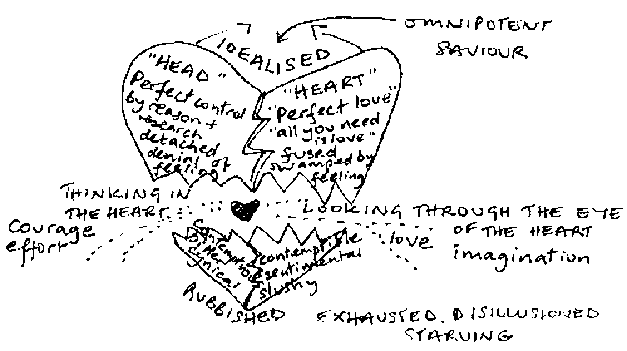 OMNIPOTENT
SAVIOUR
IDEALISED
"HEAD"
Perfect control
by reason +
research
detached
denial of
feeling
"HEART"
"Perfect love"
"all you need
is love"
fused
swamped by
feeling
THINKING IN
THE HEART
courage
effort
LOOKING THROUGH THE EYE
OF THE HEART
love
imagination
contemptuous
bitter
cynical
contemptible
sentimental
slushy
RUBBISHED
EXHAUSTED, DISILLUSIONED
STARVING